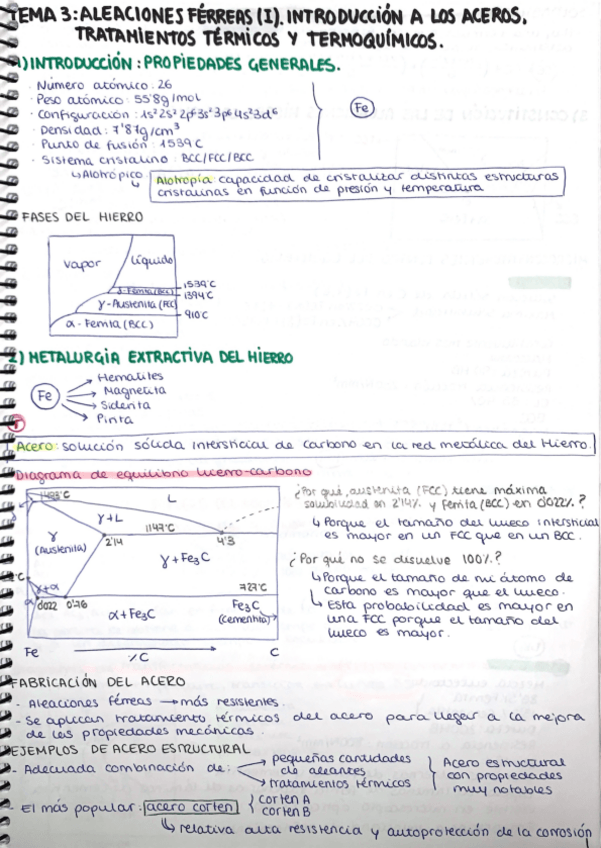 TEMA 3: ALEACIONES FÉRREAS (I). INTRODUCCIÓN A LOS ACEROS,
TRATAMIENTOS TÉRMICOS Y TERMOQUÍMICOS.
1) INTRODUCCIÓN: PROPIEDADES GENERALES.
· Número atómico: 26
· Peso atómico: 55'8g/mol
· Configuración: 1s²2s²2p⁶3s²3p⁶4s²3d⁶
· Densidad: 7'87g/cm³
· Punto de fusión: 1539C
· Sistema cristalino: BCC/FCC/BCC
Fe
↳ Alotrópico
↳ Alotropía: capacidad de cristalizar distintas estructuras
cristalinas en función de presión y temperatura
FASES DEL HIERRO
vapor
líquido
δ-Ferrita (BCC)
γ-Austenita (FCC)
α-Ferrita (BCC)
1539°C
1394°C
910°C
2) METALURGIA EXTRACTIVA DEL HIERRO
Fe
→ Hematites
→ Magnetita
→ Siderita
→ Pirita
Acero: solución sólida intersticial de carbono en la red metálica del Hierro.
Diagrama de equilibrio hierro-carbono
1493°C
L
γ+L
1147°C
γ
(Austenita)
2'14
4'3
γ+Fe₃C
727°C
γ+α
α
0'022 0'76
α+Fe₃C
Fe₃C
(cementita)
Fe → C
%C
¿Por qué, austenita (FCC) tiene máxima
solubilidad en 2'14% y Ferrita (BCC) en 0'022%?
↳ Porque el tamaño del hueco intersticial
es mayor en un FCC que en un BCC.
¿Por qué no se disuelve 100%?
↳ Porque el tamaño de mi átomo de
carbono es mayor que el hueco.
↳ Esta probabilidad es mayor en
una FCC porque el tamaño del
hueco es mayor.
FABRICACIÓN DEL ACERO
- Aleaciones férreas → más resistentes.
- Se aplican tratamiento térmicos del acero para llegar a la mejora
de las propiedades mecánicas.
EJEMPLOS DE ACERO ESTRUCTURAL
- Adecuada combinación de:
→ pequeñas cantidades
de aleantes
→ tratamientos térmicos
Acero estructural
con propiedades
muy notables
- El más popular: acero corten
corten A
corten B
↳ relativa alta resistencia y autoprotección de la corrosión
1